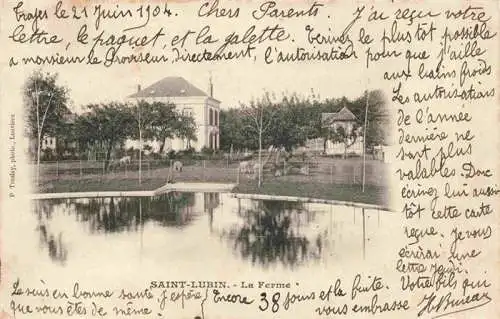 Troyes, le 21 Juin 1904. Chers Parents. J'ai reçu votre
lettre, le paquet, et la galette. Ecrivez le plus tôt possible
à monsieur le Proviseur directement, l'autorisation pour que j'aille
aux bains froids
Les autorisations
de l'année
dernière ne
sont plus
valables. Donc
écrivez lui aussi-
tôt cette carte
reçue. Je vous
écrirai une
lettre jeudi.
P. Tonday, phot., Luxeuil
SAINT-LUBIN. - La Ferme
Je suis en bonne santé, j'espère
que vous êtes de même.
Encore 38 jours et la fuite. Votre fils qui
vous embrasse